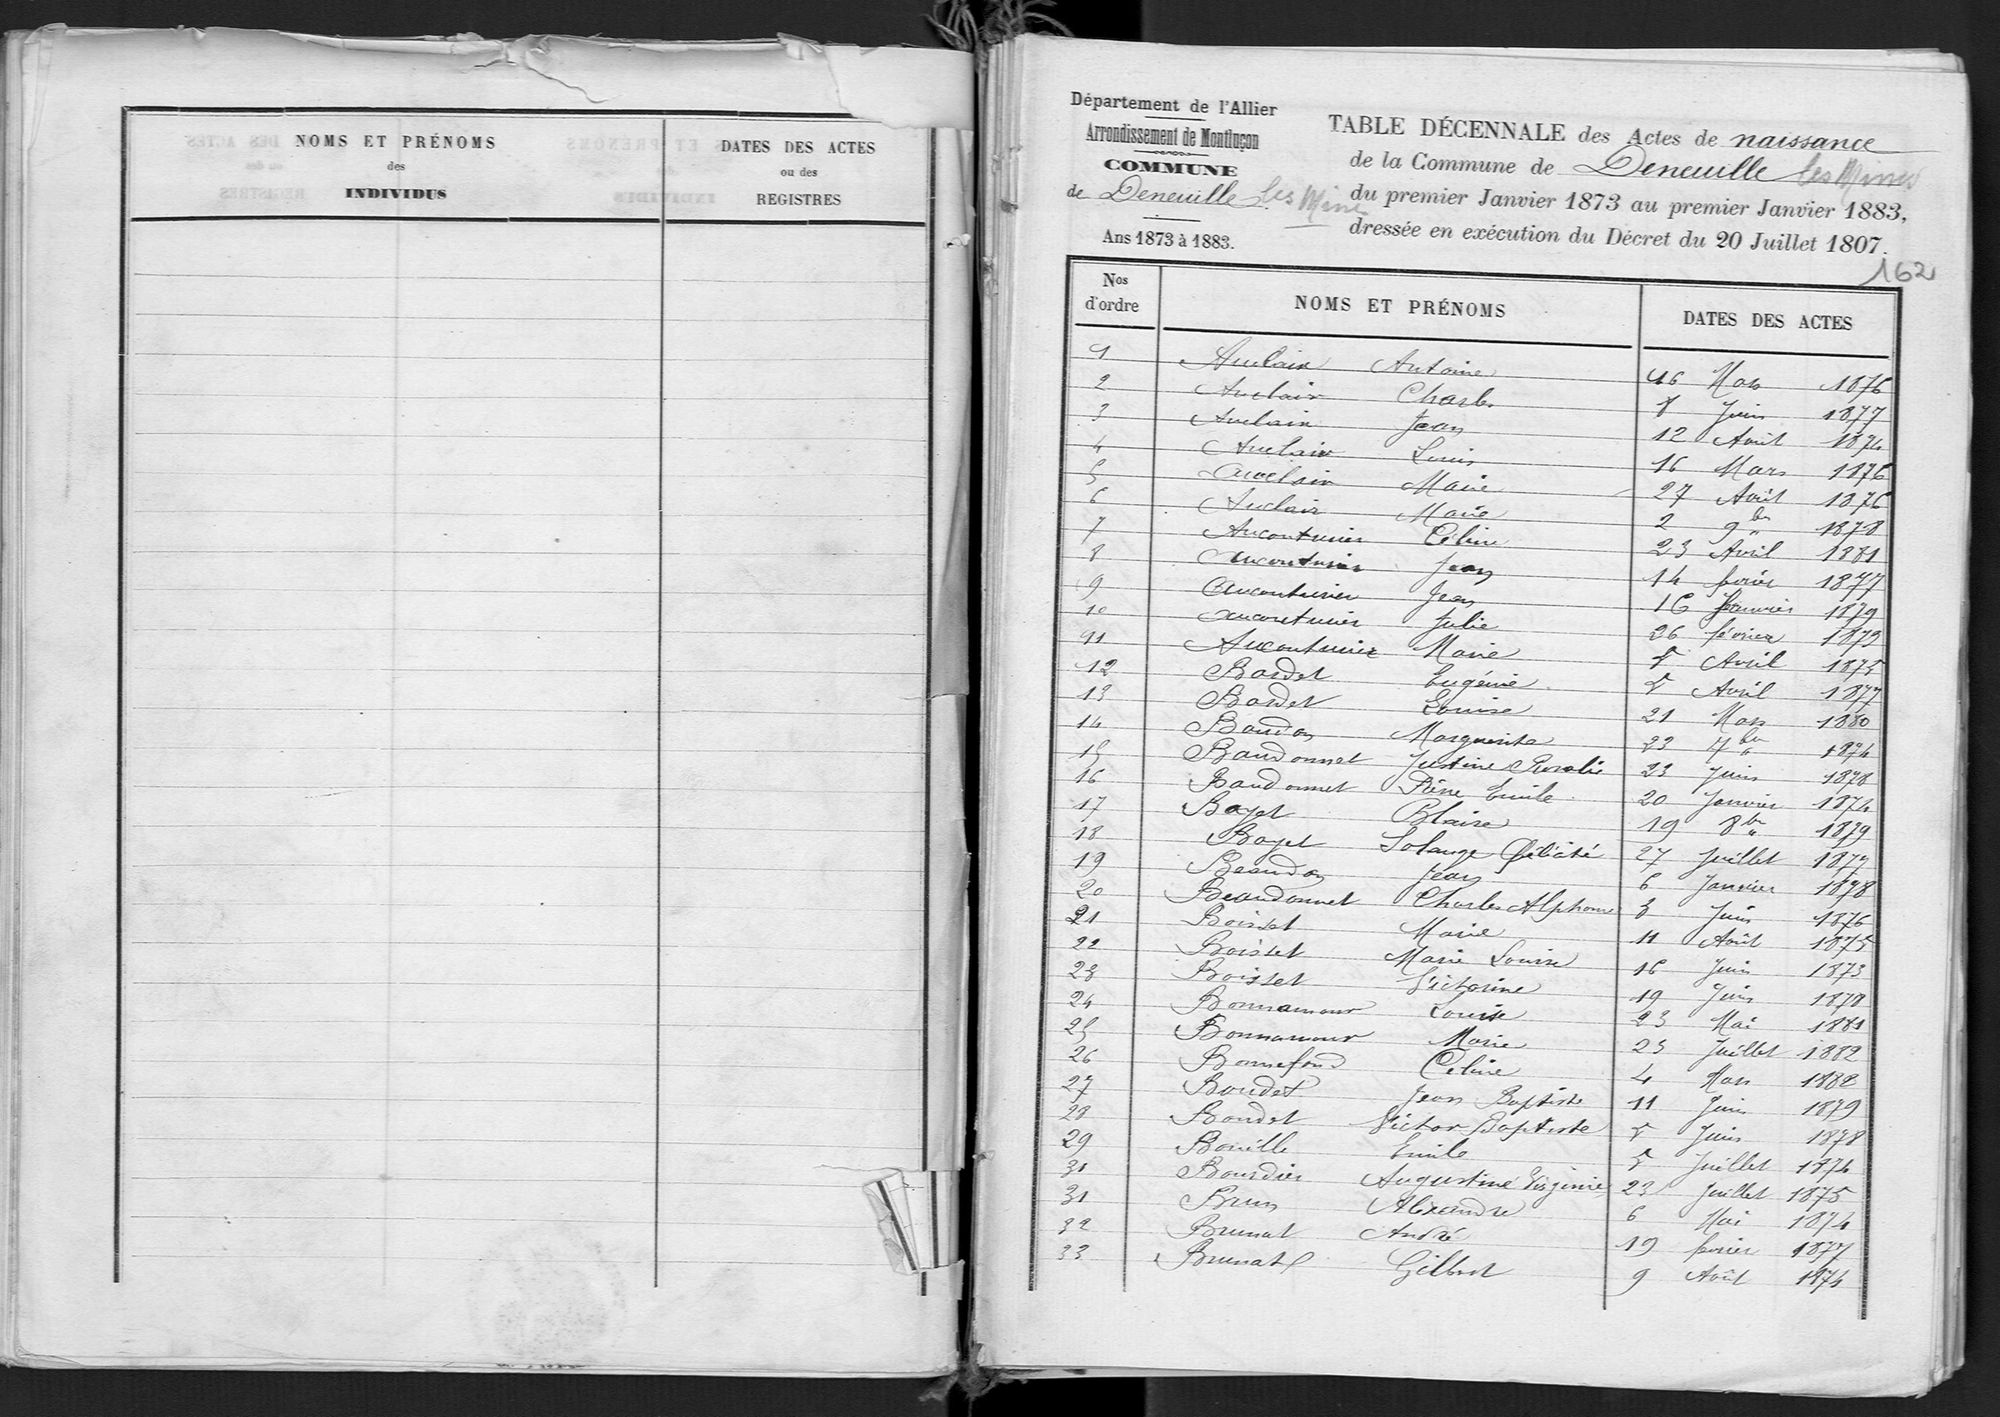 NOMS ET PRÉNOMS
des
INDIVIDUS
DATES DES ACTES
ou des
REGISTRES
Département de l'Allier
Arrondissement de Montluçon
COMMUNE
de Deneuille les Mines
Ans 1873 à 1883.
TABLE DÉCENNALE des Actes de naissance
de la Commune de Deneuille les Mines
du premier Janvier 1873 au premier Janvier 1883,
dressée en exécution du Décret du 20 Juillet 1807.
162
Nos d'ordre NOMS ET PRÉNOMS DATES DES ACTES
1 Auclair Antoine 16 Mars 1876
2 Auclair Charles 8 Juin 1877
3 Auclair Jean 12 Août 1874
4 Auclair Louis 16 Mars 1876
5 Auclair Marie 27 Août 1876
6 Auclair Marie 2 9bre 1878
7 Aucouturier Céline 23 Avril 1881
8 Aucouturier Jean 14 février 1877
9 Aucouturier Jean 16 Janvier 1879
10 Aucouturier Julie 26 février 1879
11 Aucouturier Marie 5 Avril 1875
12 Bardet Eugénie 5 Avril 1877
13 Bardet Louise 21 Mars 1880
14 Baudon Marguerite 23 7bre 1874
15 Baudonnet Justine Rosalie 23 Juin 1878
16 Baudonnet Pierre Emile 20 Janvier 1874
17 Bayet Blaise 19 8bre 1879
18 Bayet Solange Félicité 27 Juillet 1877
19 Beaudon Jean 6 Janvier 1878
20 Beaudonnet Charles Alphonse 8 Juin 1876
21 Boisset Marie 11 Août 1875
22 Boisset Marie Louise 16 Juin 1873
23 Boisset Victorine 19 Juin 1878
24 Bonnamour Louise 23 Mai 1881
25 Bonnamour Marie 23 Juillet 1882
26 Bonnefond Céline 4 Mars 1882
27 Boudet Jean Baptiste 11 Juin 1879
28 Boudet Victor Baptiste 5 Juin 1878
29 Bouille Emile 5 Juillet 1874
31 Bourdier Augustine Virginie 23 Juillet 1875
31 Brun Alexandre 6 Mai 1874
32 Brunat André 19 février 1877
33 Brunat Gilbert 9 Août 1874